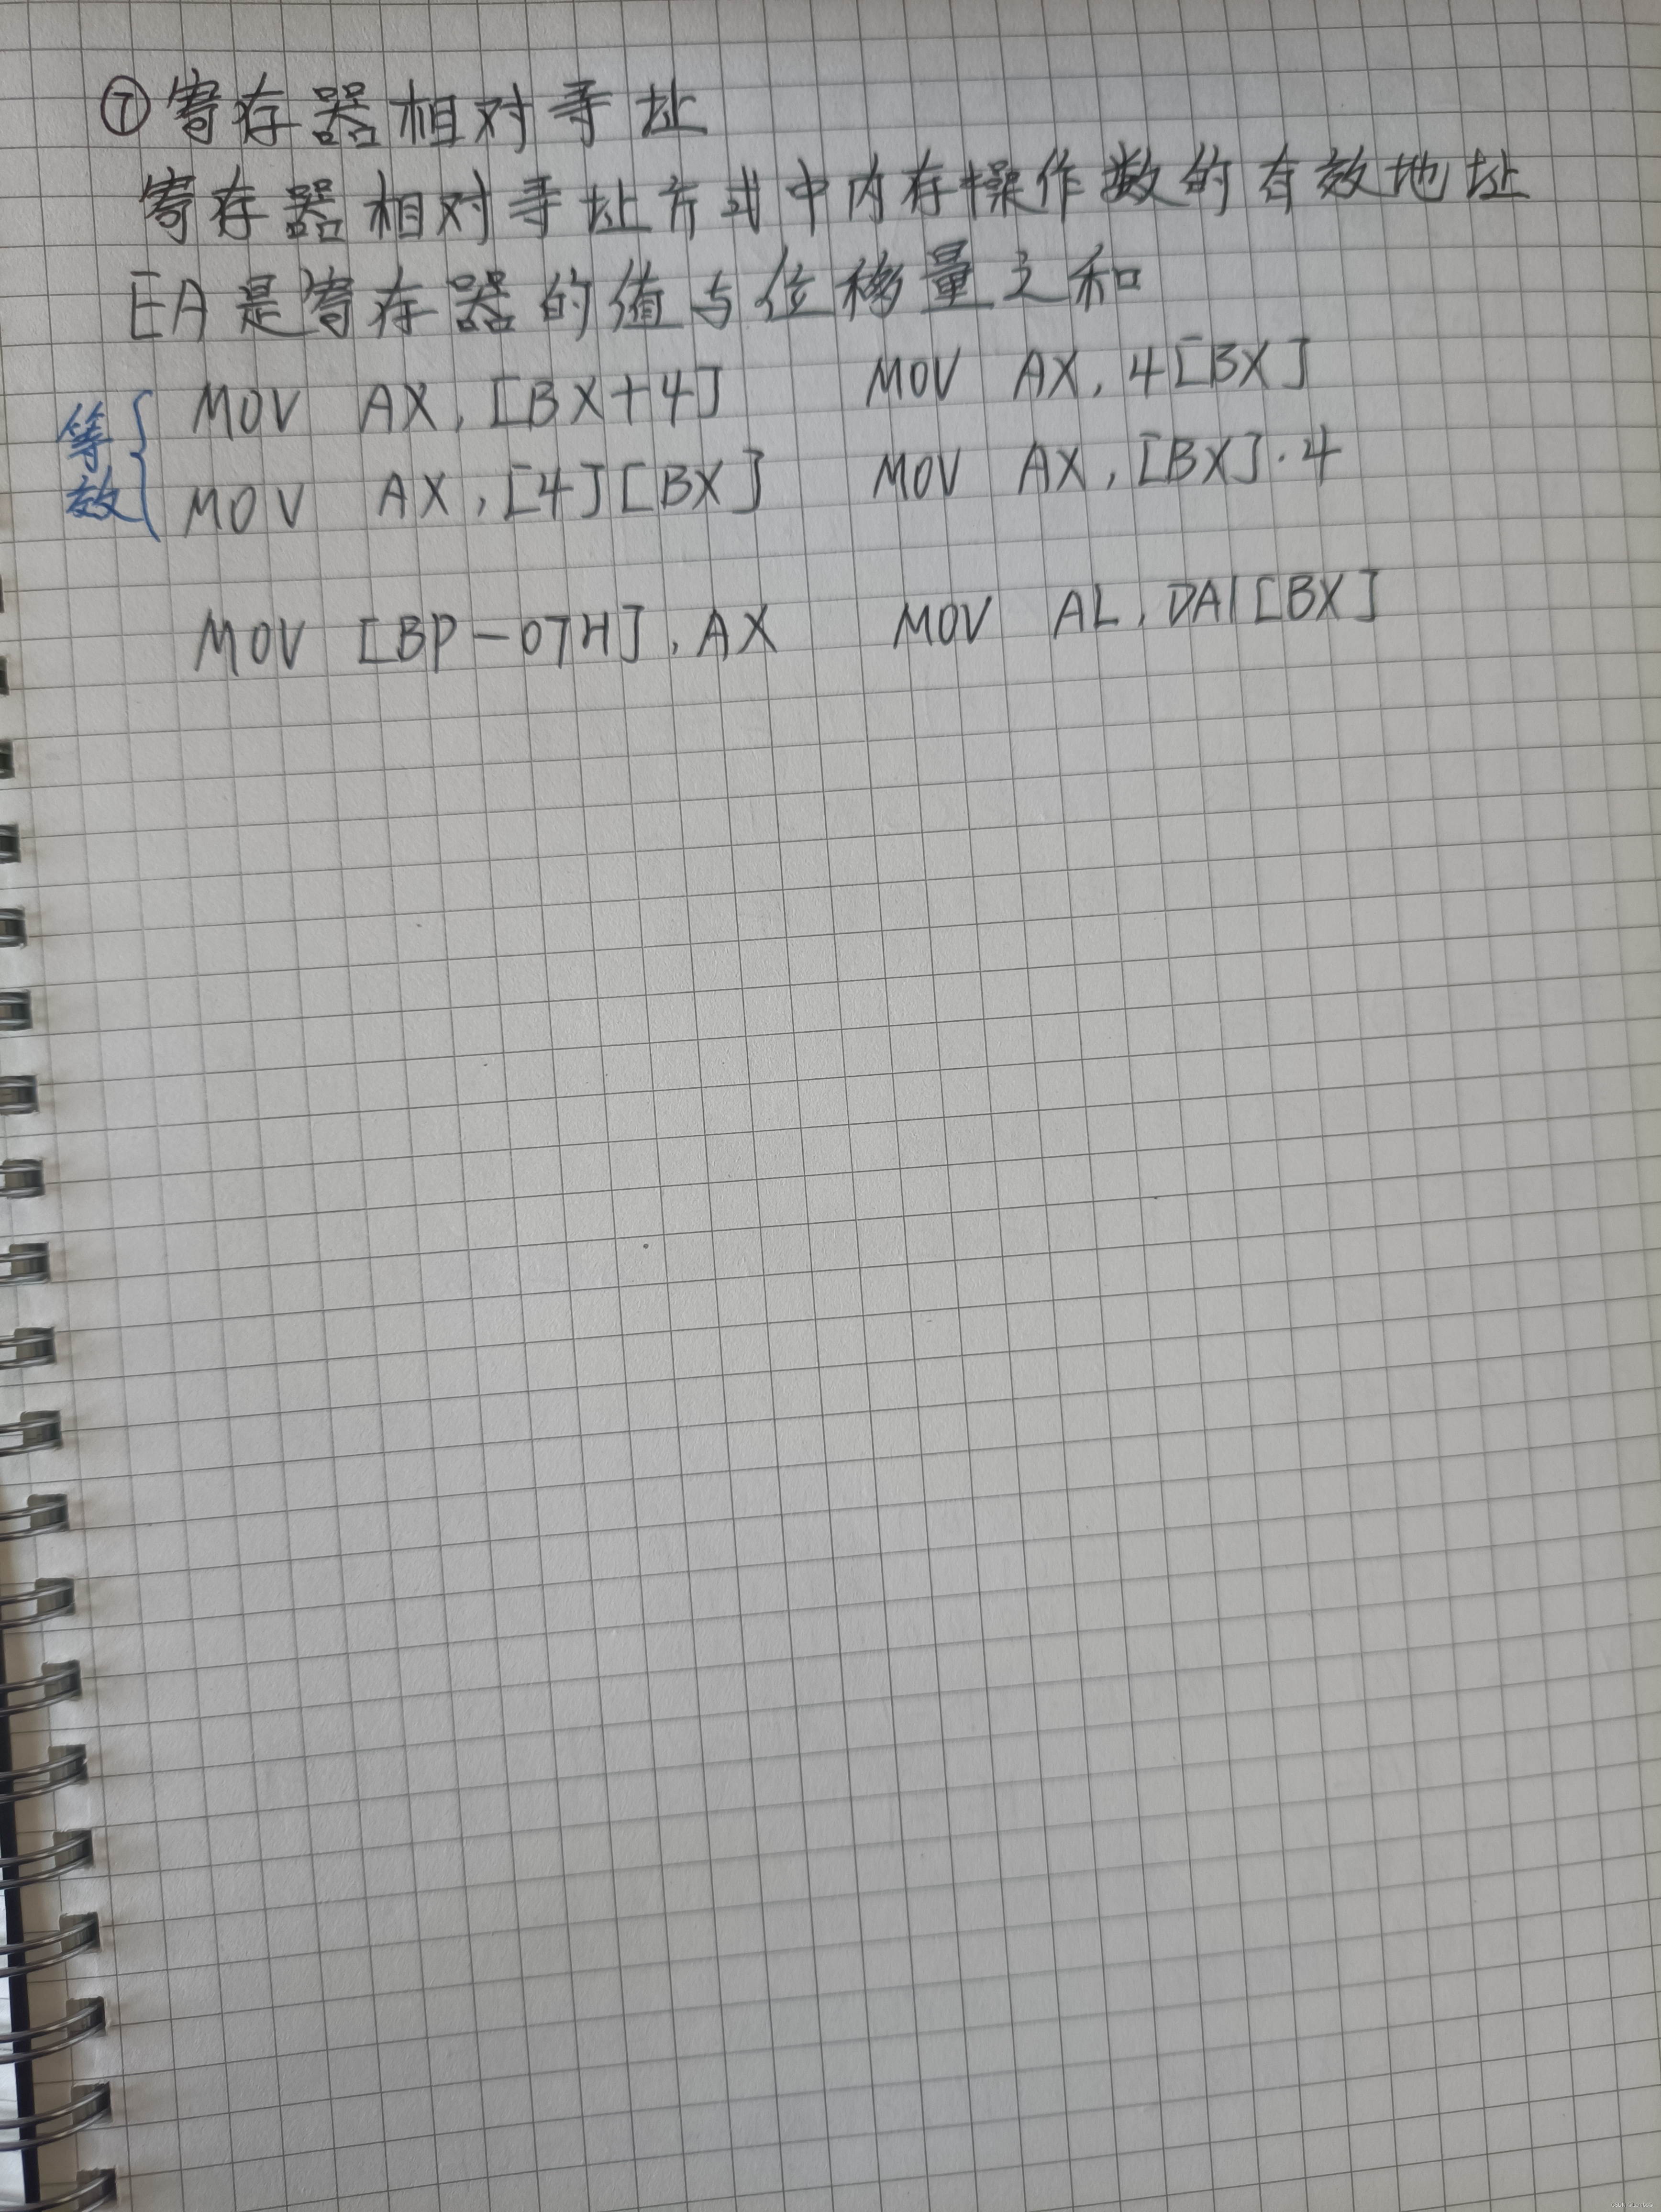 ⑦寄存器相对寻址
寄存器相对寻址方式中内存操作数的有效地址
EA是寄存器的值与位移量之和
等效
MOV AX, [BX+4] MOV AX, 4[BX]
MOV AX, [4][BX] MOV AX, [BX].4
MOV [BP-07H], AX MOV AL, DA1[BX]